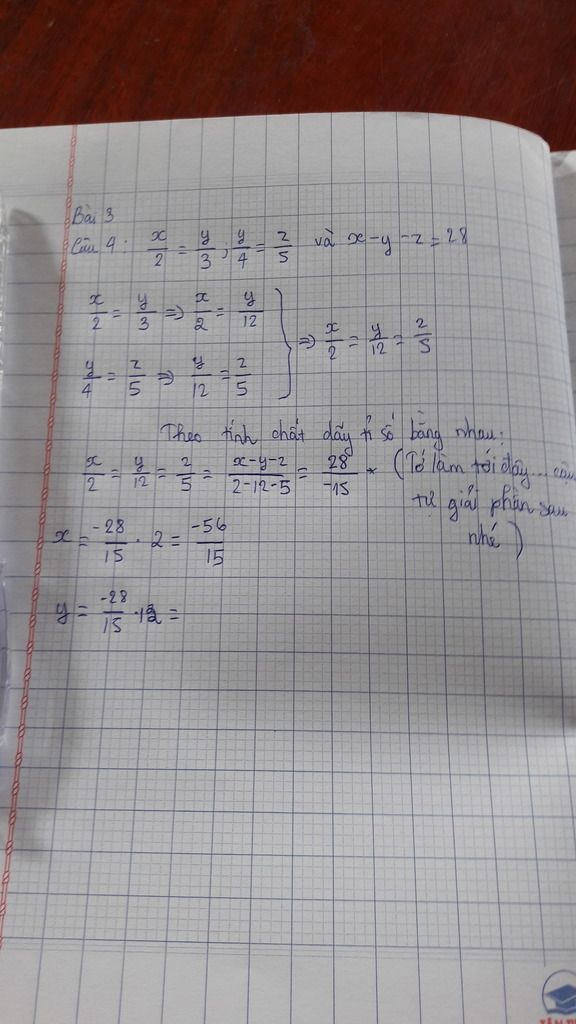 Bài 3
Câu 4: x/2 = y/3 ; y/4 = z/5 và x-y-z = 28
x/2 = y/3 => x/2 = y/12
y/4 = z/5 => y/12 = z/5
=> x/2 = y/12 = z/5
Theo tính chất dãy tỉ số bằng nhau:
x/2 = y/12 = z/5 = x-y-z/2-12-5 = 28/-15 * (Tớ làm tới đây...
tự giải phần sau
nhé)
x = -28/15 . 2 = -56/15
y = -28/15 . 12 =